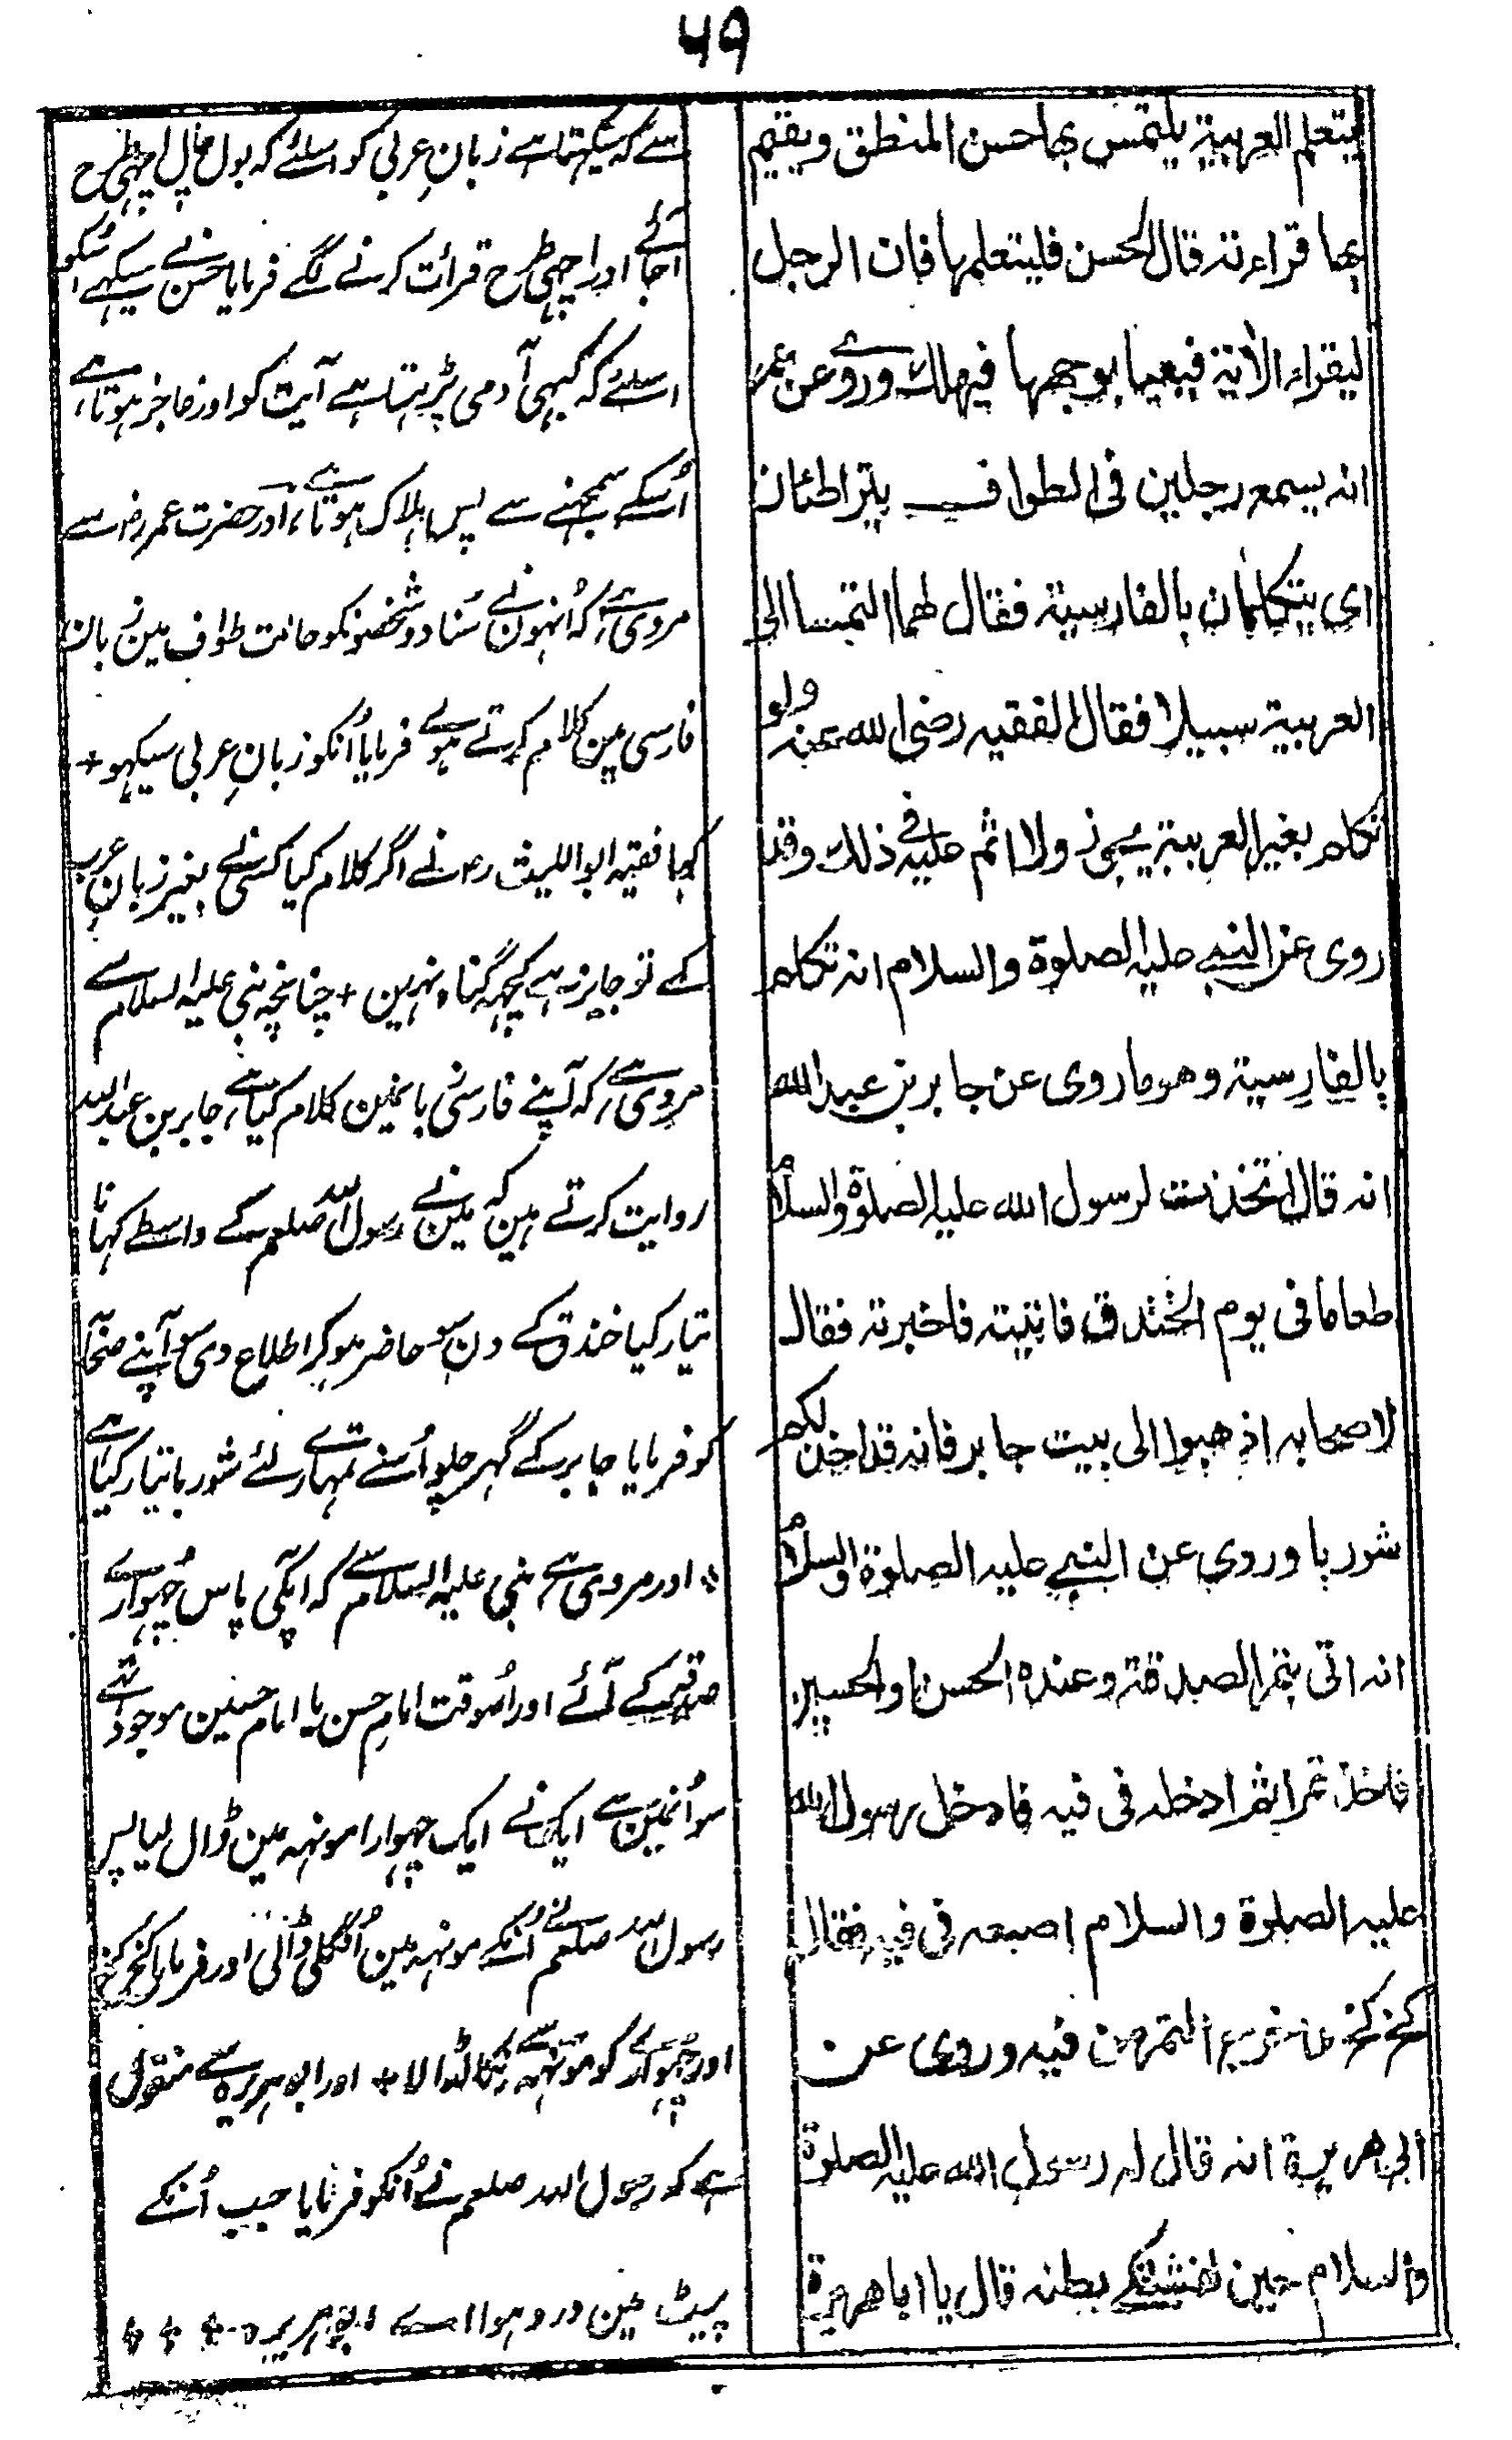 ۶۹
يتعلم العربية يلتمس بها حسن المنطق ويقيم
بها قراءته قال الحسن فليتعلمها فان الرجل
ليقراء الأية فيعيا بوجهها فيهلك وروى عن عمر
انه يسمع رجلين فى الطواف يتراطنان
اى يتكلمان بالفارسية فقال لهما التمسا الى
العربية سبيلا فقال الفقيه رضى الله عنه ولو
تكلم بغير العربية يجوز ولا اثم عليه فى ذلك وقد
روى عن النبى عليه الصلوة والسلام انه تكلم
بالفارسية وهو ما روى عن جابر بن عبد الله
انه قال اتخذت لرسول الله عليه الصلوة والسلام
طعاما فى يوم الخندق فاتيته فاخبرته فقال
لاصحابه اذهبوا الى بيت جابر فانه قد اخذ لكم
شوربا وروى عن النبى عليه الصلوة والسلام
انه اتى بتمر الصدقة وعنده الحسن او الحسين
فاخذ تمرا ثم ادخله فى فيه فادخل رسول الله
عليه الصلوة والسلام اصبعه فى فيه فقال
كخ كخ فاخرج التمر من فيه وروى عن
ابى هريرة انه قال له رسول الله عليه الصلوة
والسلام حين اشتكى بطنه قال يا ابا هريرة
ہے کہ سیکہتا ہے زبانِ عربی کو اسلئے کہ بول چال اچہی طرح
آجائے اور اچہی طرح قرأت کرنے لگے فرمایا حسن نے سیکہے اُسکو
اسلئے کہ کبہی آدمی پڑہتا ہے آیت کو اور عاجز ہوتا ہے
اُسکے سمجہنے سے پس ہلاک ہوتا ہے، اور حضرت عمر رض سے
مروی ہے کہ اُنہون نے سُنا دو شخصونکو حالت طواف مین زبان
فارسی مین کلام کرتے ہوئے فرمایا اُنکو زبانِ عربی سیکہو +
کہا فقیہ ابو اللیث رح نے اگر کلام کیا کسی نے بغیر زبان عرب
کے تو جایز ہے کچہہ گناہ نہین + چنانچہ نبی علیہ السلام سے
مروی ہے کہ آپنے فارسی باتمین کلام کیا ہے، جابر بن عبد اللہ
روایت کرتے ہین کہ مینے رسول اللہ صلعم کے واسطے کہانا
تیار کیا خندق کے دن سو حاضر ہوکر اطلاع دی سو آپنے صحابہ
کو فرمایا جابر کے گہر چلو اُسنے تمہارے لئے شوربا تیار کیا ہے
اور مروی ہے نبی علیہ السلام سے کہ آپکی پاس چہوارے
صدقہ کے آئے اور اُسوقت امام حسن یا امام حسین موجود تہے
سو اُنمین سے ایک نے ایک چہوارا مونہہ مین ڈال لیا پس
رسول اللہ صلعم نے اُنکے مونہہ مین اُنگلی ڈالی اور فرمایا کخ کخ
اور کو مونہہ سے نکالڈالا + اور ابو ہریرہ سے منقول
ہے کہ رسول اللہ صلعم نے اُنکو فرمایا جب اُنکے
پیٹ مین درد ہوا اے ابو ہریرہ